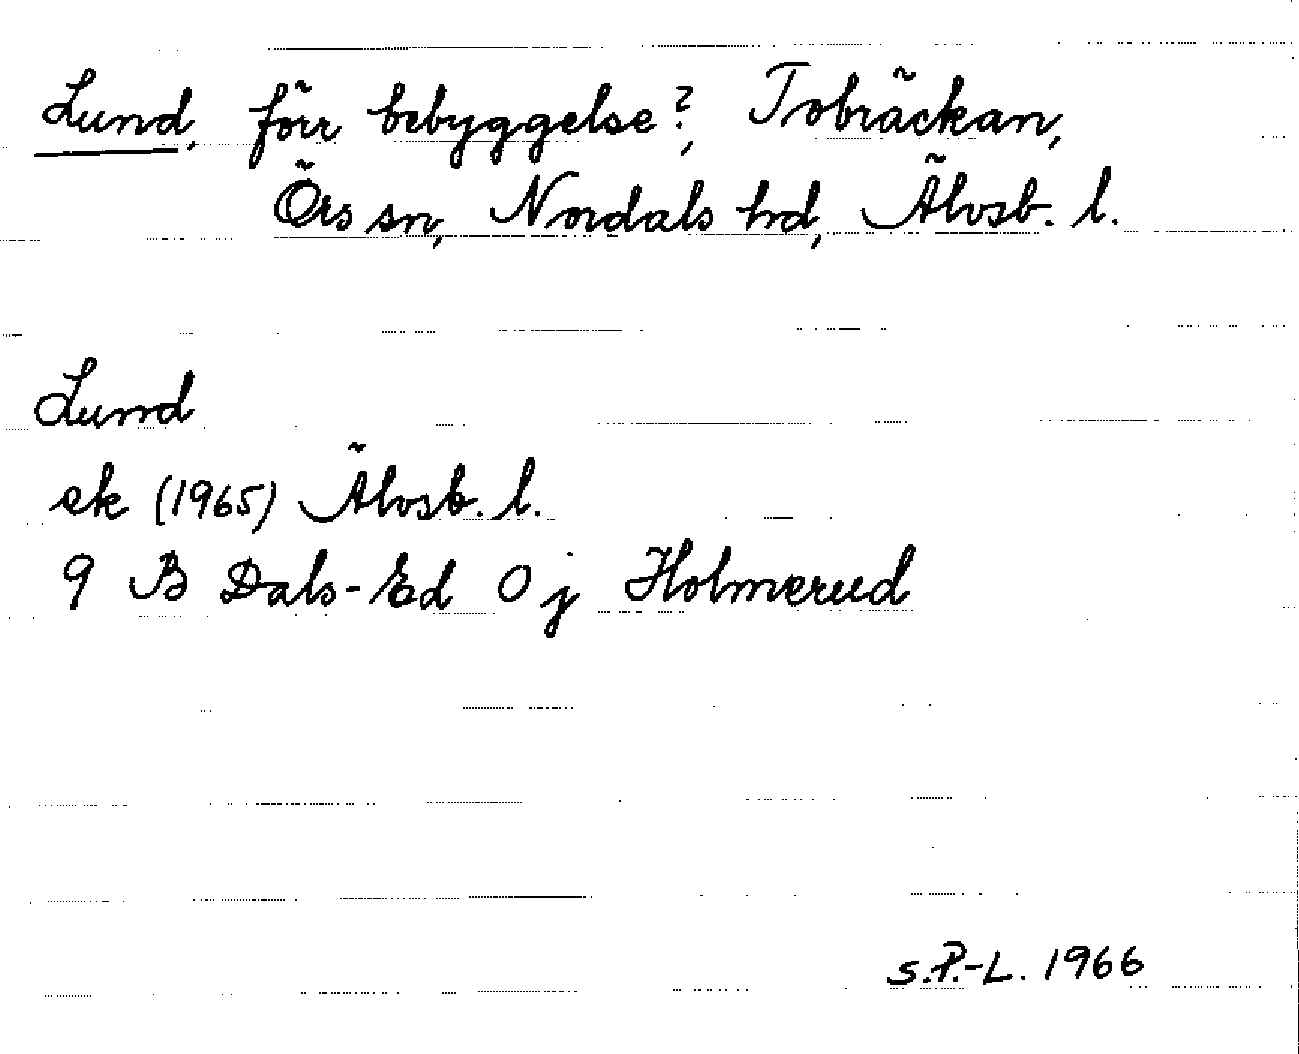 Lund, förr bebyggelse?, Tobräckan,
Örs sn, Nordals hd, Älvsb. l.
Lund
ek (1965) Älvsb. l.
9 B Dals-Ed 0 j Holmerud
S.P.-L. 1966